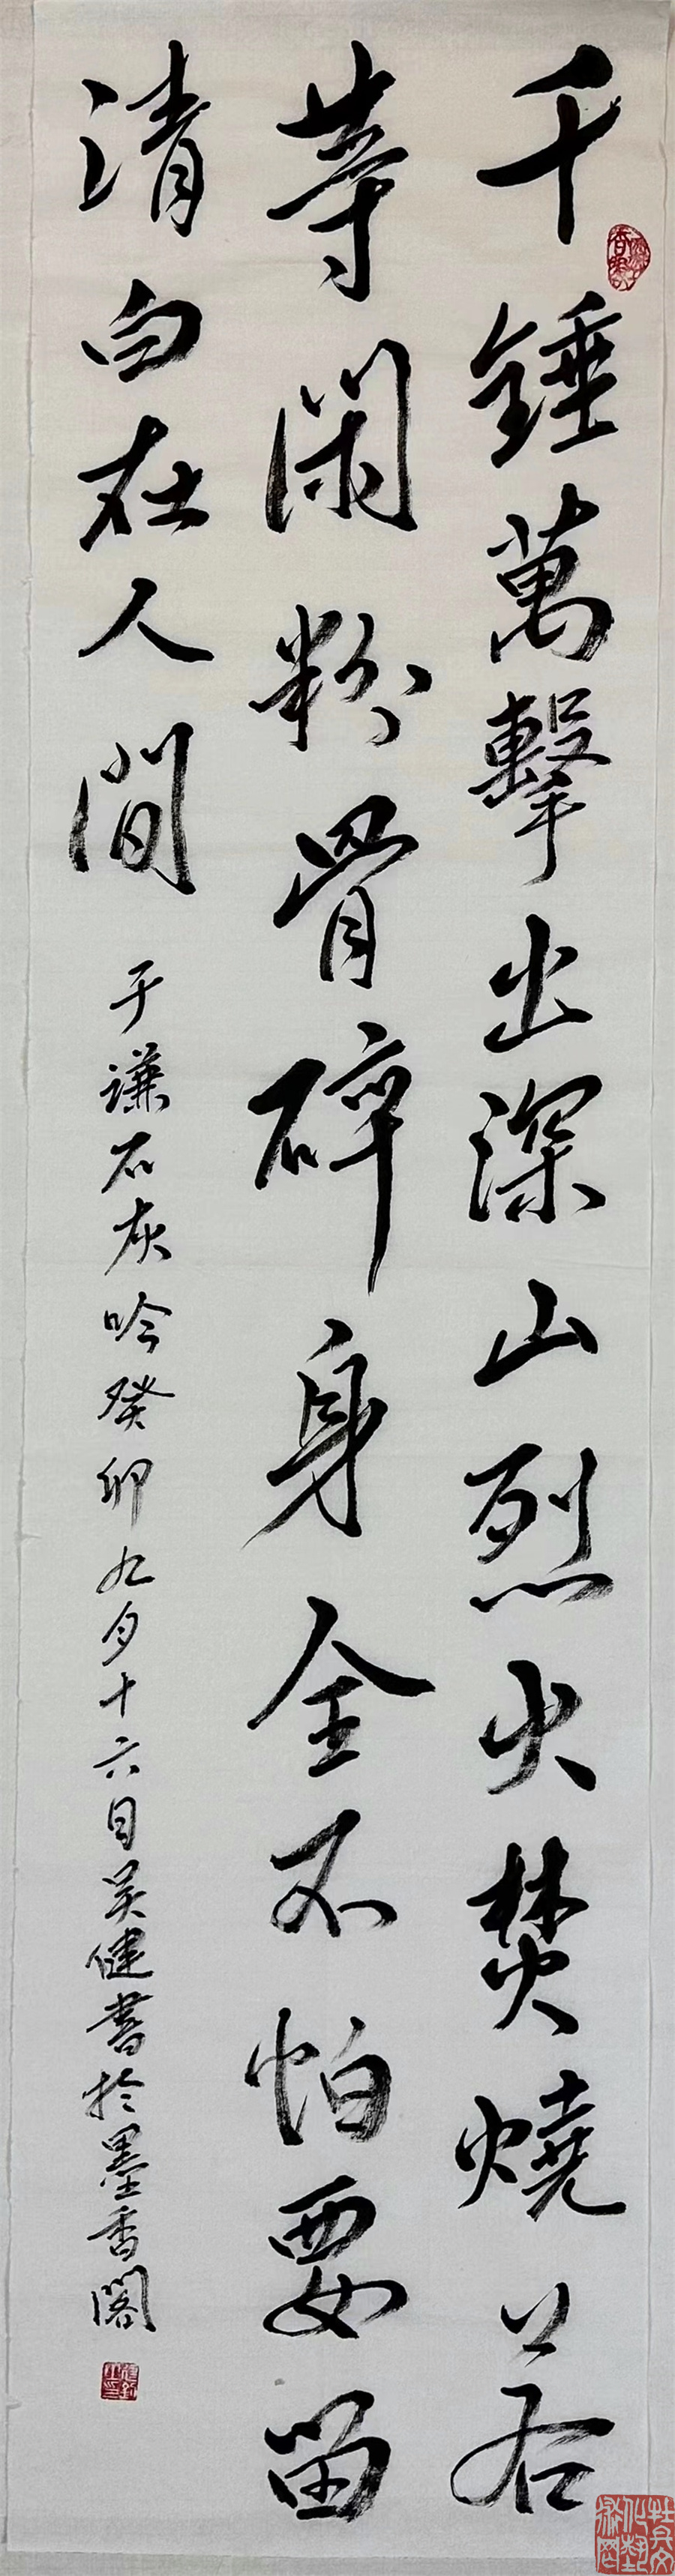 千錘萬擊出深山烈火焚燒若
等閑粉骨碎身全不怕要留
清白在人間
于謙石灰吟癸卯九月十六日吴健書於墨香閣